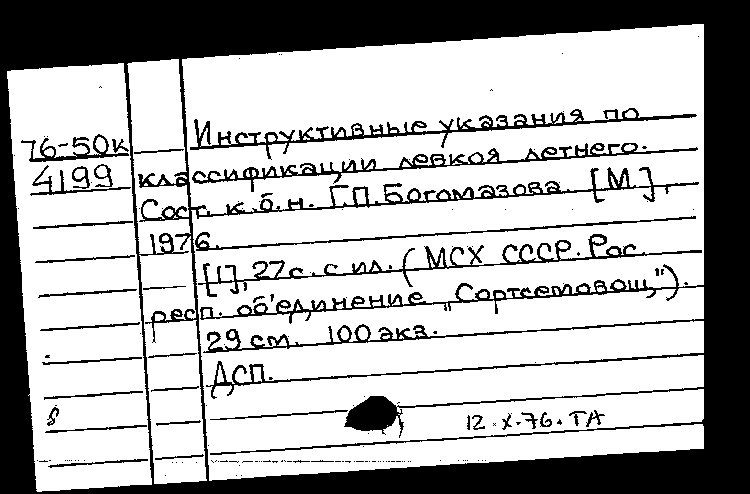 76-50к
4199
Инструктивные указания по
классификации левкоя летнего.
Сост. к.б.н. Г.П.Богомазова. [М.],
1976.
[1], 27с. с ил. (МСХ СССР. Рос.
респ. об'единение „Сортсемовощ").
29 см. 100 экз.
ДСП.
12.X.76. ТА